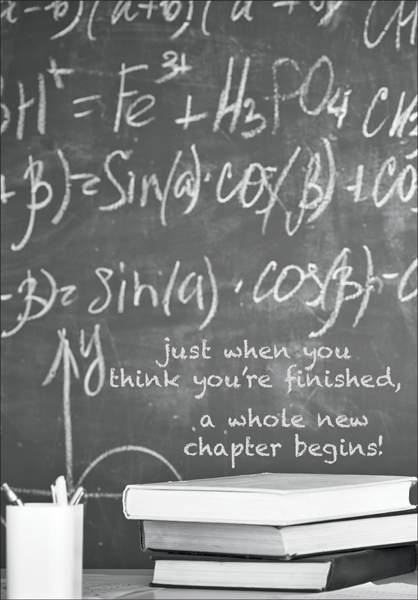 α-b)(a+b)(a
BH⁺ = Fe³⁺ + H₃PO₄ CH
+β)=Sin(a)·cos(β)+Co
-β)= sin(a)·cos(β)-c
y
just when you
think you're finished,
a whole new
chapter begins!